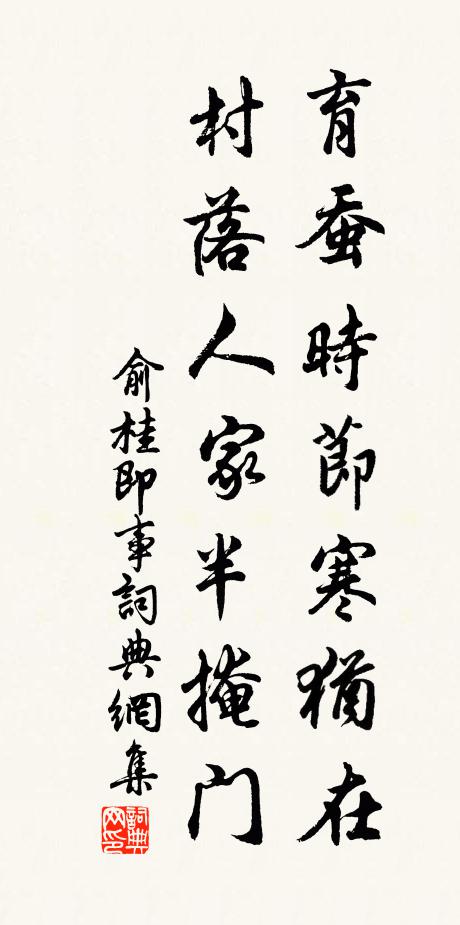 育蚕時節寒猶在
村落人家半掩門
俞桂即事詞典網集
詞典网印